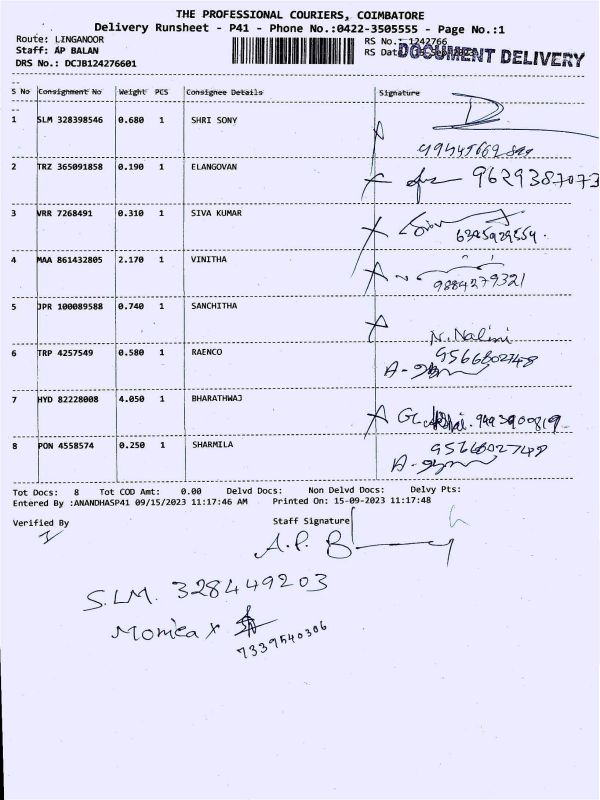 THE PROFESSIONAL COURIERS, COIMBATORE
Delivery Runsheet - P41 - Phone No.:0422-3505555 - Page No.:1
Route: LINGANOOR
RS No.: 1242766
Staff: AP BALAN
RS Dat
DOCUMENT DELIVERY
DRS No.: DCJB124276601
S No Consignment No Weight PCS Consignee Details Signature
1 SLM 328398546 0.680 1 SHRI SONY
2 TRZ 365091858 0.190 1 ELANGOVAN 9629387073
3 VRR 7268491 0.310 1 SIVA KUMAR
4 MAA 861432805 2.170 1 VINITHA 9884279321
5 JPR 100089588 0.740 1 SANCHITHA N. Nalini
6 TRP 4257549 0.580 1 RAENCO 9566802748
7 HYD 82228008 4.050 1 BHARATHWAJ
8 PON 4558574 0.250 1 SHARMILA 9566802748
Tot Docs: 8 Tot COD Amt: 0.00 Delvd Docs: Non Delvd Docs: Delvy Pts:
Entered By :ANANDHASP41 09/15/2023 11:17:46 AM Printed On: 15-09-2023 11:17:48
Verified By Staff Signature
A.P. B
S.LM. 328449203
Monica x
7339540306